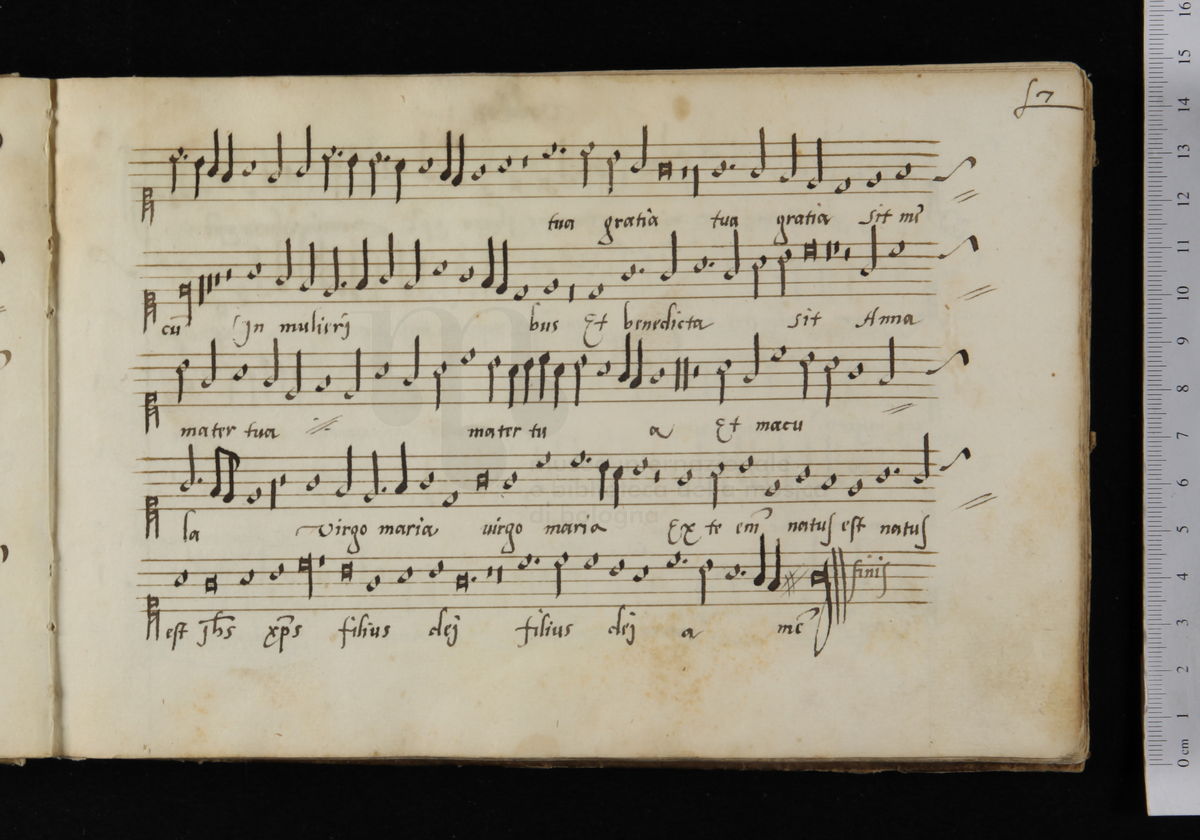 57
tua gratia tua gratia sit me
cū In mulieri bus Et benedicta sit Anna
mater tua mater tu a Et macu
la virgo maria virgo maria Ex te em̄ natus est natus
est Jh̄s xp̄s filius dej filius dej a mē
finis
16
15
14
13
12
11
10
9
8
7
6
5
4
3
2
1
0 cm